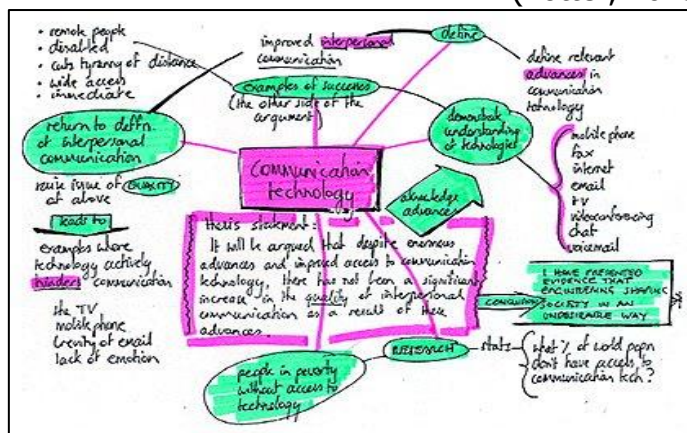 • remote people
• disabled
• cuts tyranny of distance
• wide access
• immediate
improved interpersonal
communication
define
define relevant
advances in
communication
technology
examples of success
(the other side of the
argument)
return to deffn.
of interpersonal
communication
demonstrate
understanding
of technologies
mobile phone
fax
internet
email
TV
videoconferencing
chat
voicemail
communication
technology
raise issue of QUALITY
of above
leads to
examples where
technology actively
hinders communication
the TV
mobile phone
brevity of email
lack of emotion
aknowledge
advances
thesis statement:
It will be argued that despite enormous
advances and improved access to communication
technology, there has not been a significant
increase in the quality of interpersonal
communication as a result of these
advances.
CONCLUSION
I HAVE PRESENTED
EVIDENCE THAT
ENGINEERING SHAPING
SOCIETY IN AN
UNDESIRABLE WAY
people in poverty
without access to
technology
RESEARCH
stats
what % of world popn
don't have access to
communication tech?